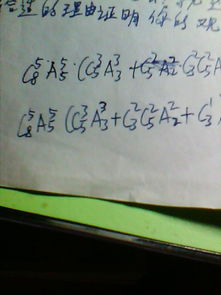 的理由证明你的观
C₈⁵A₅⁵·(C₅³A₃³+C₅²A₂²·C₃²C₅
C₈⁵A₅⁵(C₅³A₃³+C₃²C₅²A₂²+C₃